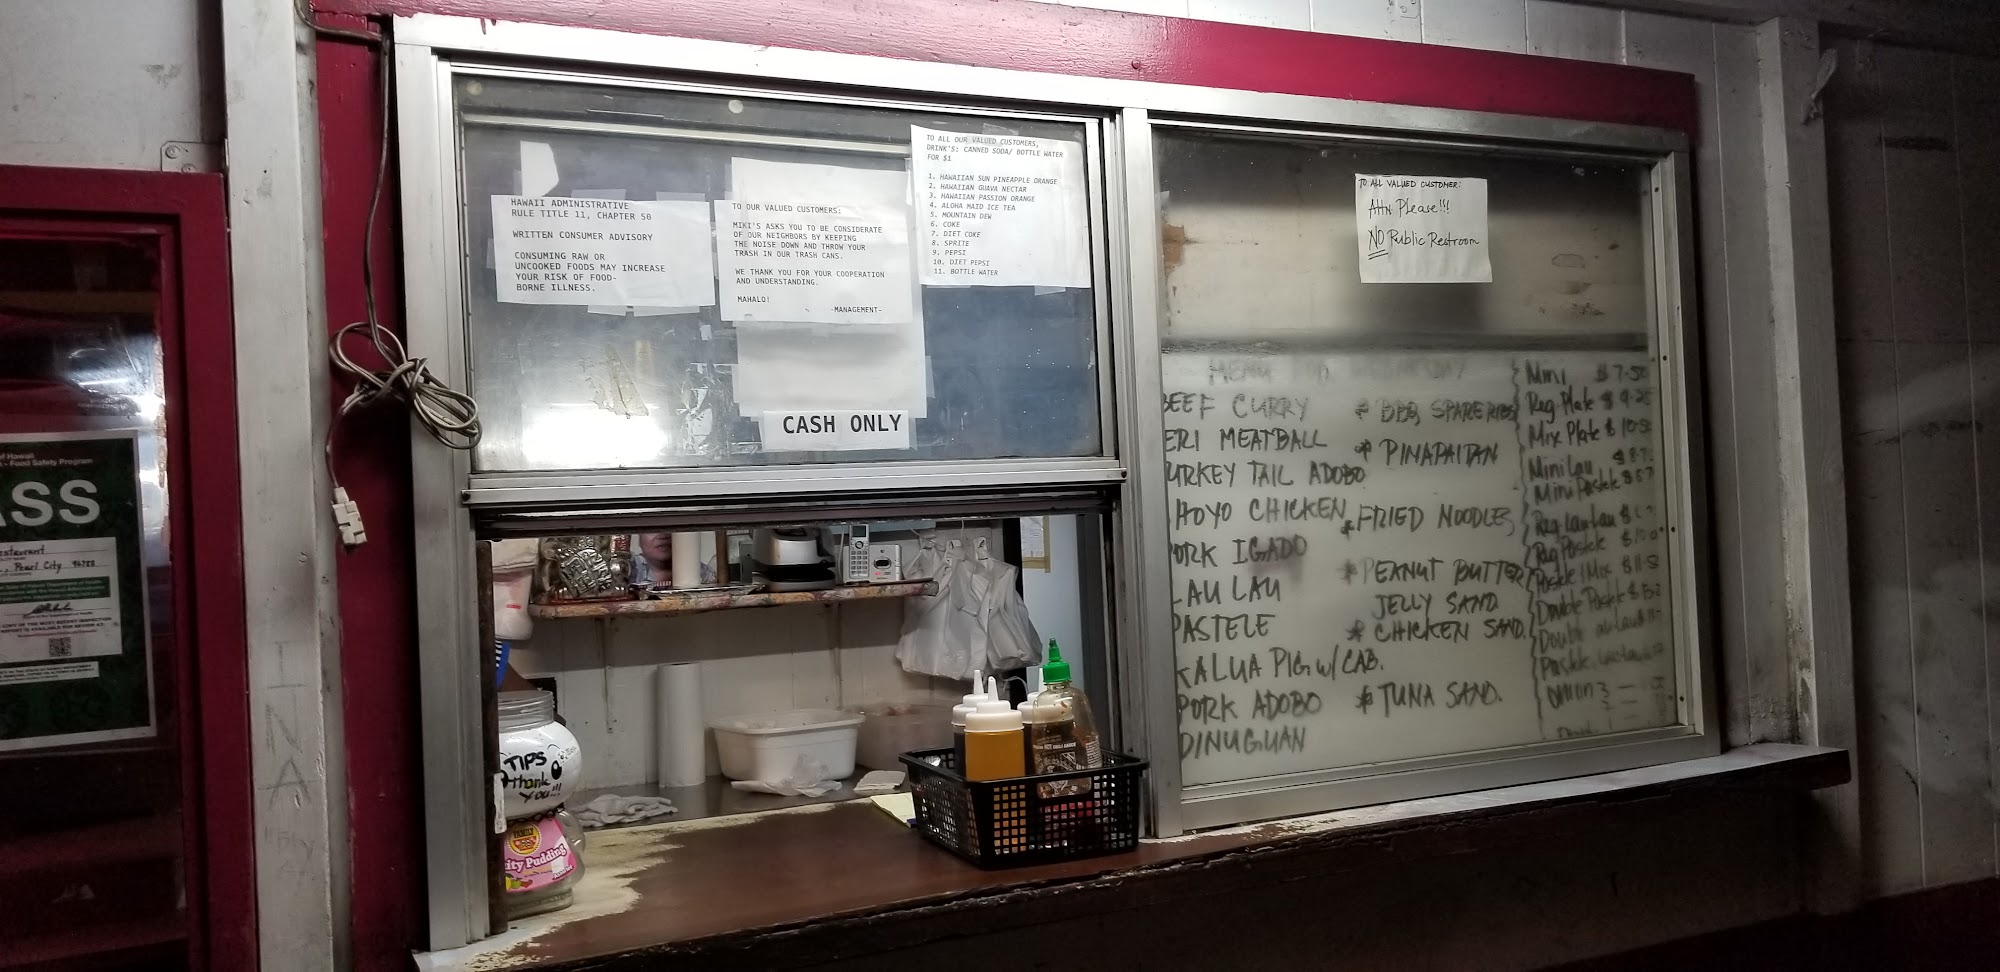 HAWAII ADMINISTRATIVE
RULE TITLE 11, CHAPTER 50
WRITTEN CONSUMER ADVISORY
CONSUMING RAW OR
UNCOOKED FOODS MAY INCREASE
YOUR RISK OF FOOD-
BORNE ILLNESS.
TO OUR VALUED CUSTOMERS:
MIKI'S ASKS YOU TO BE CONSIDERATE
OF OUR NEIGHBORS BY KEEPING
THE NOISE DOWN AND THROW YOUR
TRASH IN OUR TRASH CANS.
WE THANK YOU FOR YOUR COOPERATION
AND UNDERSTANDING.
MAHALO!
-MANAGEMENT-
CASH ONLY
TO ALL OUR VALUED CUSTOMERS,
DRINK'S: CANNED SODA/ BOTTLE WATER
FOR $1
1. HAWAIIAN SUN PINEAPPLE ORANGE
2. HAWAIIAN GUAVA NECTAR
3. HAWAIIAN PASSION ORANGE
4. ALOHA MAID ICE TEA
5. MOUNTAIN DEW
6. COKE
7. DIET COKE
8. SPRITE
9. PEPSI
10. DIET PEPSI
11. BOTTLE WATER
TO ALL VALUED CUSTOMER:
Attn Please!!!
NO Public Restroom
MENU FOR
EEF CURRY
ERI MEATBALL
URKEY TAIL ADOBO
HOYO CHICKEN
ORK IGADO
LAU LAU
PASTELE
KALUA PIG w/ CAB.
PORK ADOBO
DINUGUAN
* BBQ SPARERIBS
* PINAPAITAN
* FRIED NOODLES
* PEANUT BUTTER
JELLY SAND
* CHICKEN SAND.
* TUNA SAND.
Mini $7.50
Reg. Plate $9.25
Mix Plate $10.50
Mini Lau
Mini Pastele
Reg Lau Lau
Reg Pastele
Pastele / Mix
Double Pastele
Double
Pastele
of Hawaii
- Food Safety Program
ASS
estaurant
, Pearl City
TIPS
Thank
YOU!!!
FAMILY
ity Pudding